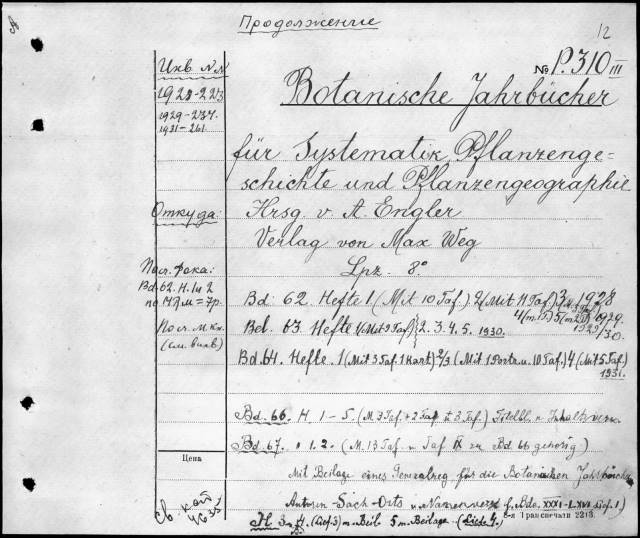 Продолжение
12
Инв. №№
1928-223
1929-237.
1931-261.
№ P.310 III
Botanische Jahrbücher
für Systematik, Pflanzenge=
schichte und Pflanzengeographie
Откуда:
Hrsg. v. A. Engler
Verlag von Max Weg
Lpz. 8°
Bd. 62. H. 1 и 2
по 14 Р.М = 7р.
Bd. 62. Hefte 1 (Mit 10 Taf.) 2 (Mit 11 Taf.) 3 1928
Bd. 63. Hefte 1 (Mit 9 Taf) 2. 3. 4. 5. 1930.
Bd. 64. Hefte. 1 (Mit 3 Taf. 1 Kart) 2/3 (Mit 1 Portr. u. 10 Taf.) 4 (Mit 5 Taf.)
1931.
Bd. 66. H. 1-5. (M. 3 Taf. + 2 Taf. + 3 Taf.) Titelbl. u. Inhaltsverz.
Bd. 67. " 1. 2. (M. 13 Taf. u. Taf. IX zu Bd 66 gehörig)
Цена
Mit Beilage eines Generalreg. für die Botanischen Jahrbücher
Autoren-Sach-Orts u. Namenverz. f. Bde. XXXI-LXVI (Lief. 1)
H. 3 u. 4. (Lief. 3) m. Beil. 5 m. Beilage (Lief. 4.)
св. кат
4635
3-я Транспечати 2213.